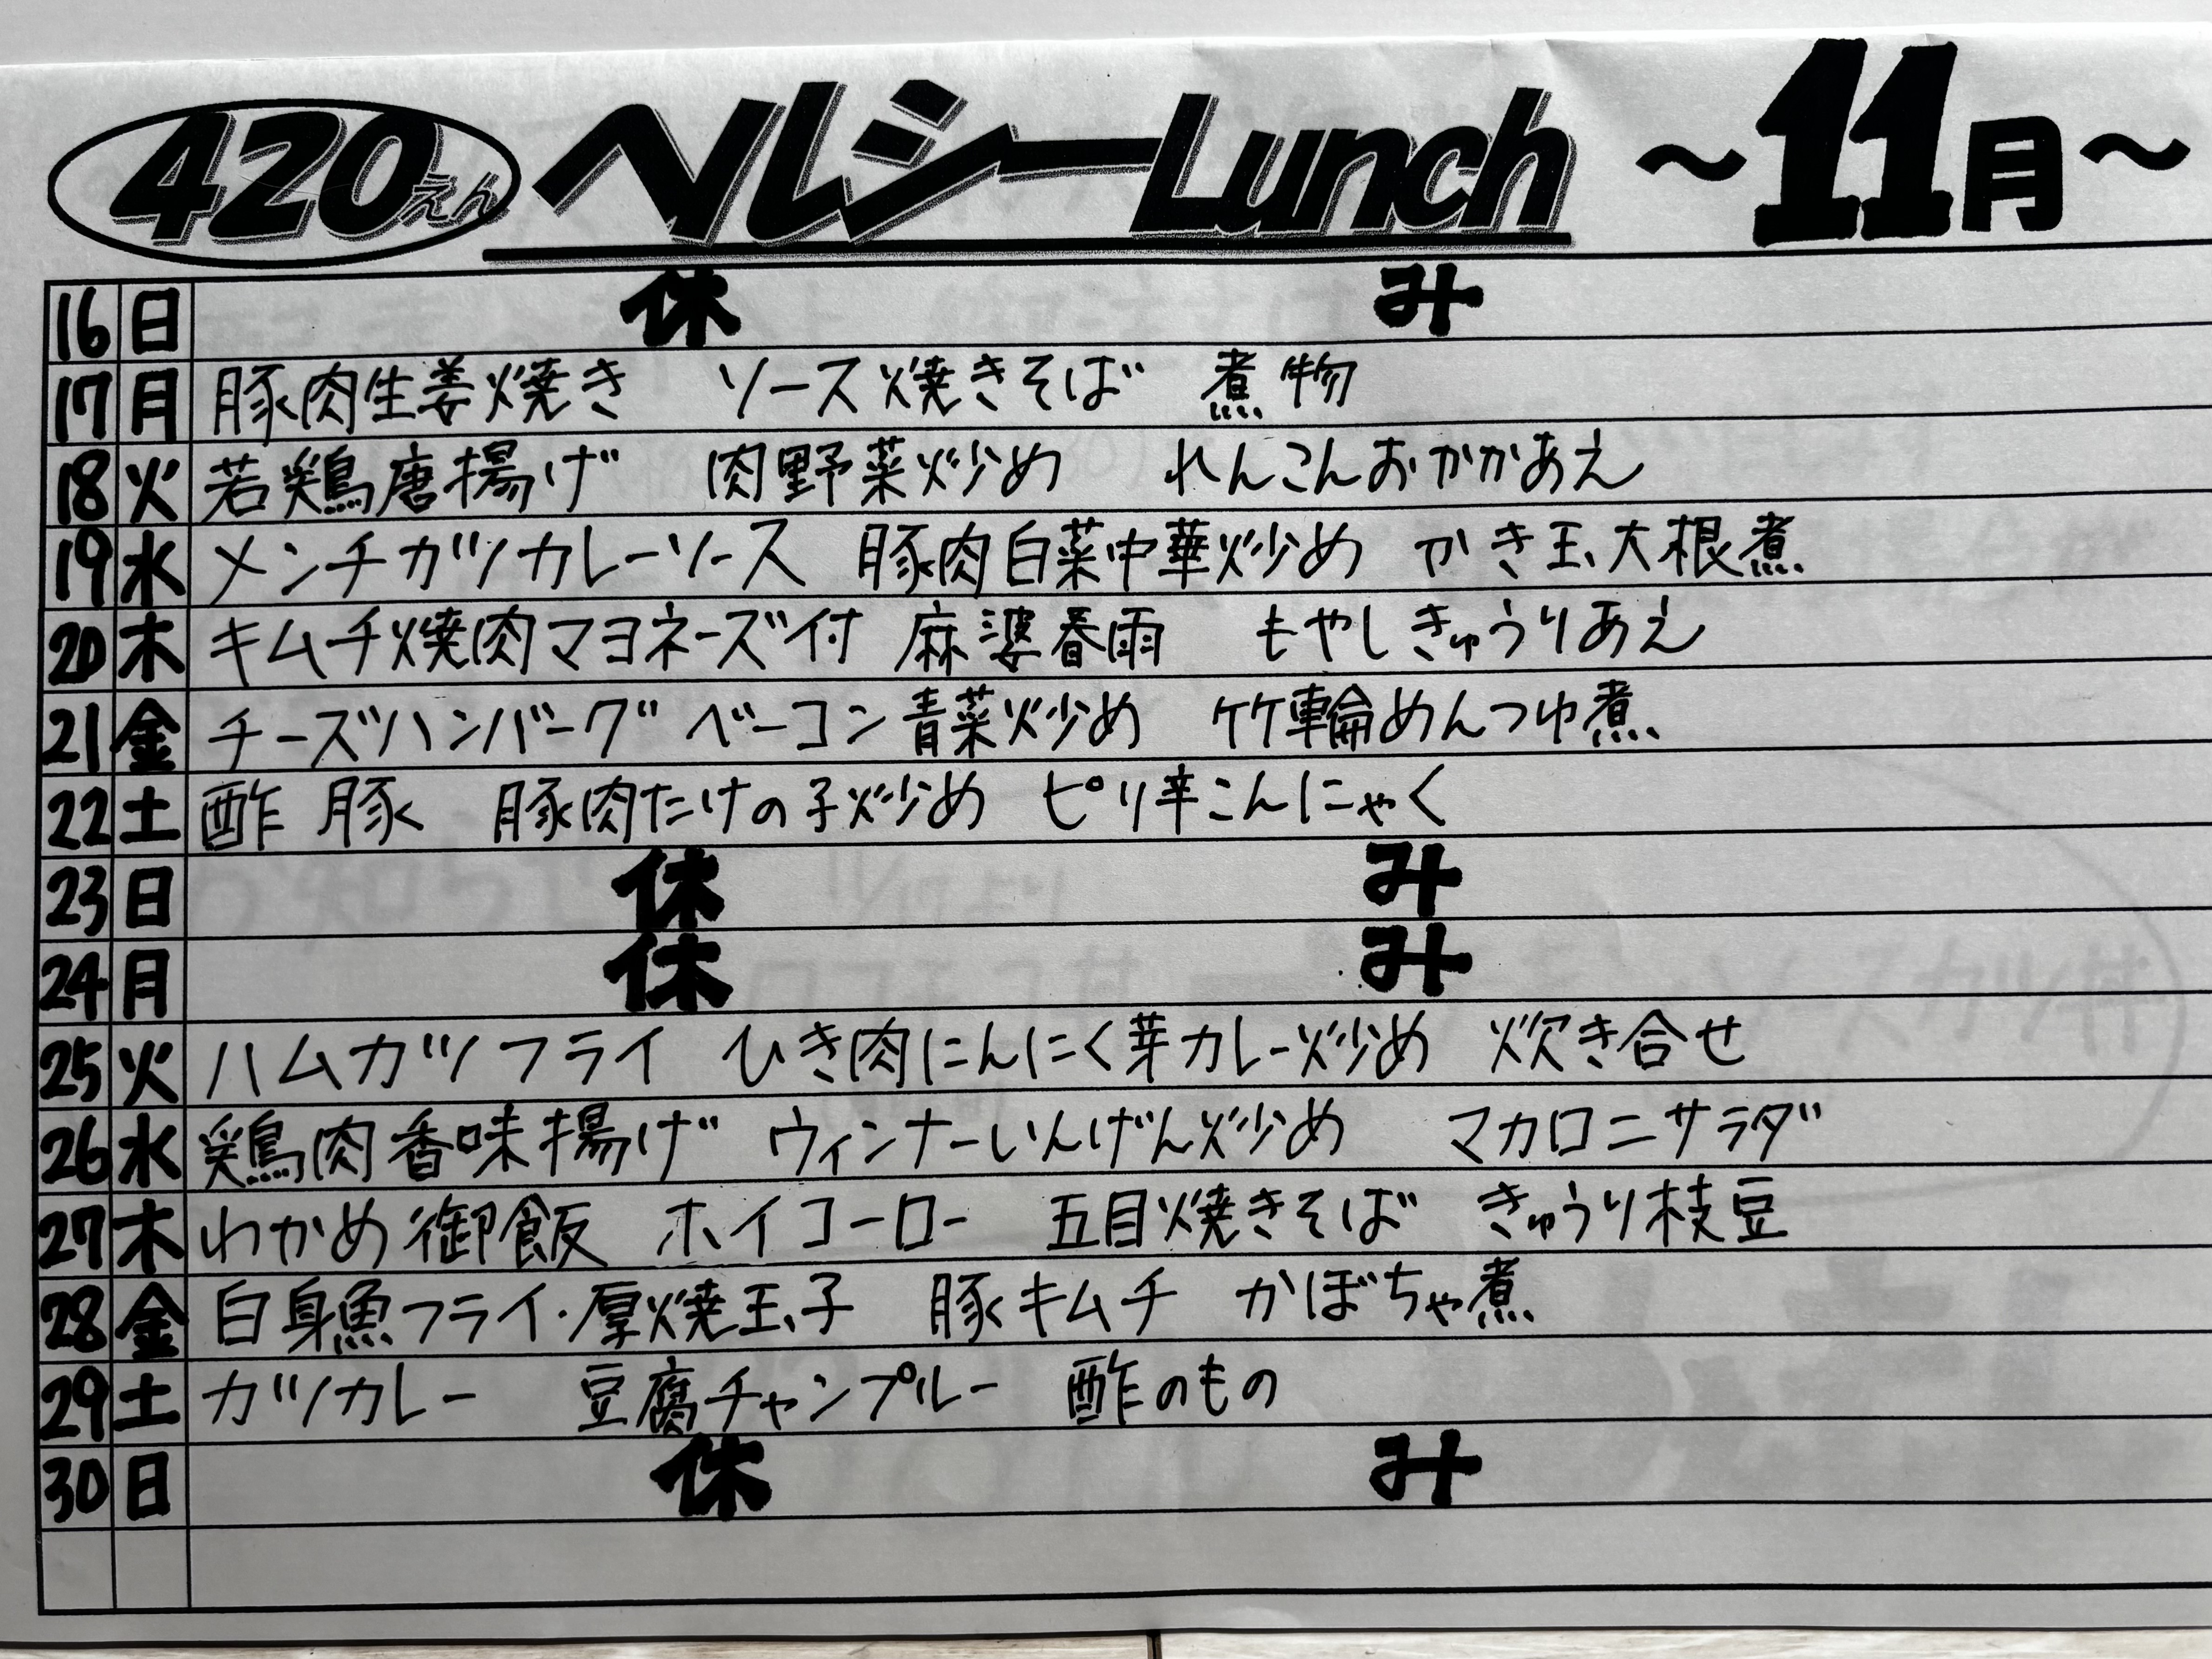 420えん ヘルシーLunch ～11月～
16 日 休 み
17 月 豚肉生姜焼き ソース焼きそば 煮物
18 火 若鶏唐揚げ 肉野菜炒め れんこんおかかあえ
19 水 メンチカツカレーソース 豚肉白菜中華炒め かき玉大根煮
20 木 キムチ焼肉マヨネーズ付 麻婆春雨 もやしきゅうりあえ
21 金 チーズハンバーグ ベーコン青菜炒め 竹輪めんつゆ煮
22 土 酢豚 豚肉たけの子炒め ピリ辛こんにゃく
23 日 休 み
24 月 休 み
25 火 ハムカツフライ ひき肉にんにく芽カレー炒め 炊き合せ
26 水 鶏肉香味揚げ ウィンナーいんげん炒め マカロニサラダ
27 木 わかめ御飯 ホイコーロー 五目焼きそば きゅうり枝豆
28 金 白身魚フライ・厚焼玉子 豚キムチ かぼちゃ煮
29 土 カツカレー 豆腐チャンプルー 酢のもの
30 日 休 み